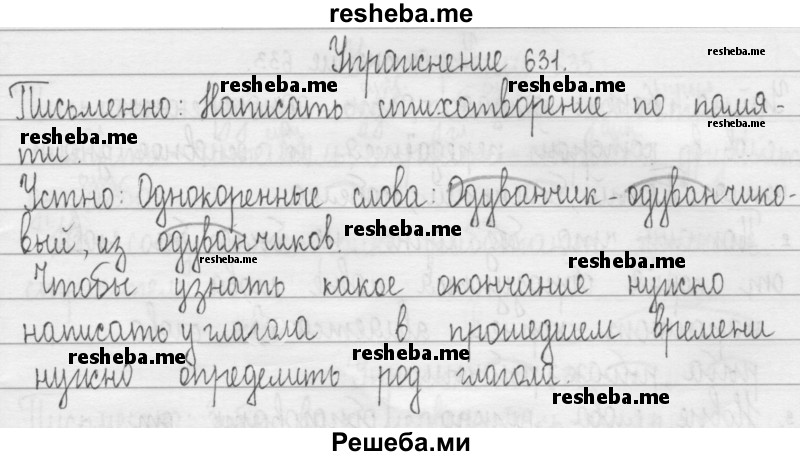 resheba.me
Упражнение 631.
resheba.me
resheba.me
Письменно: Написать стихотворение по памя-
resheba.me
resheba.me
ти.
Устно: Однокоренные слова: Одуванчик - одуванчико-
resheba.me
вый, из одуванчиков
resheba.me
resheba.me
Чтобы узнать какое окончание нужно
написать у глагола в прошедшем времени
resheba.me
resheba.me
нужно определить род глагола.
resheba.me
Решеба.ми